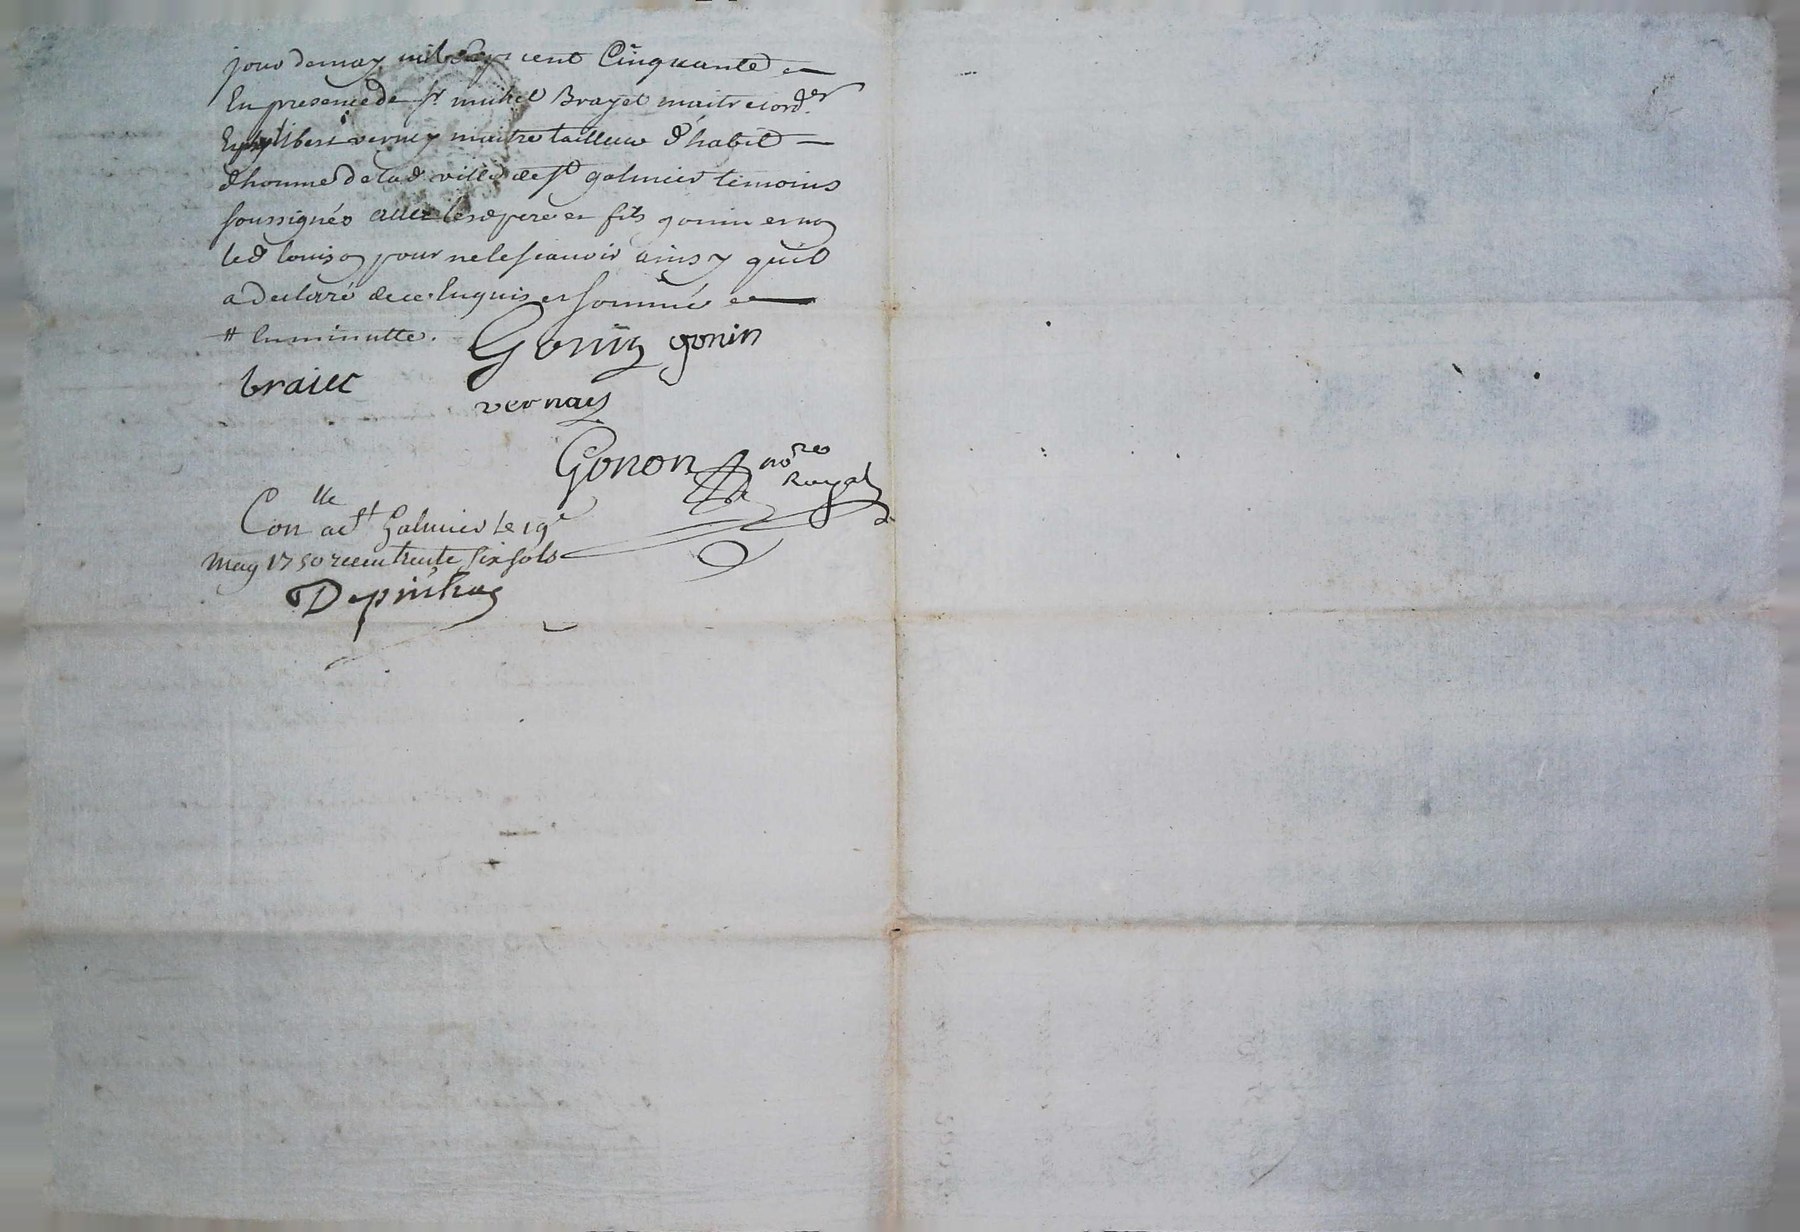 jour de may mil sept cent Cinquante et
En presence de sr michel Brayet maitre cord.er
Et philibert verney maitre tailleur d'habit
d'homme de lad. ville de st galmier temoins
soussignés avec lesd pere et fils gonin et non
led louison pour ne le sçauoir ainsy quil
a declarré de ce Enquis et sommé et
# En minutte.
Gonin gonin
braiet
vernay
Gonon no.re Royal
Con.lle a st Galmier le 19e
may 1750 receu trente six sols
Depinhac